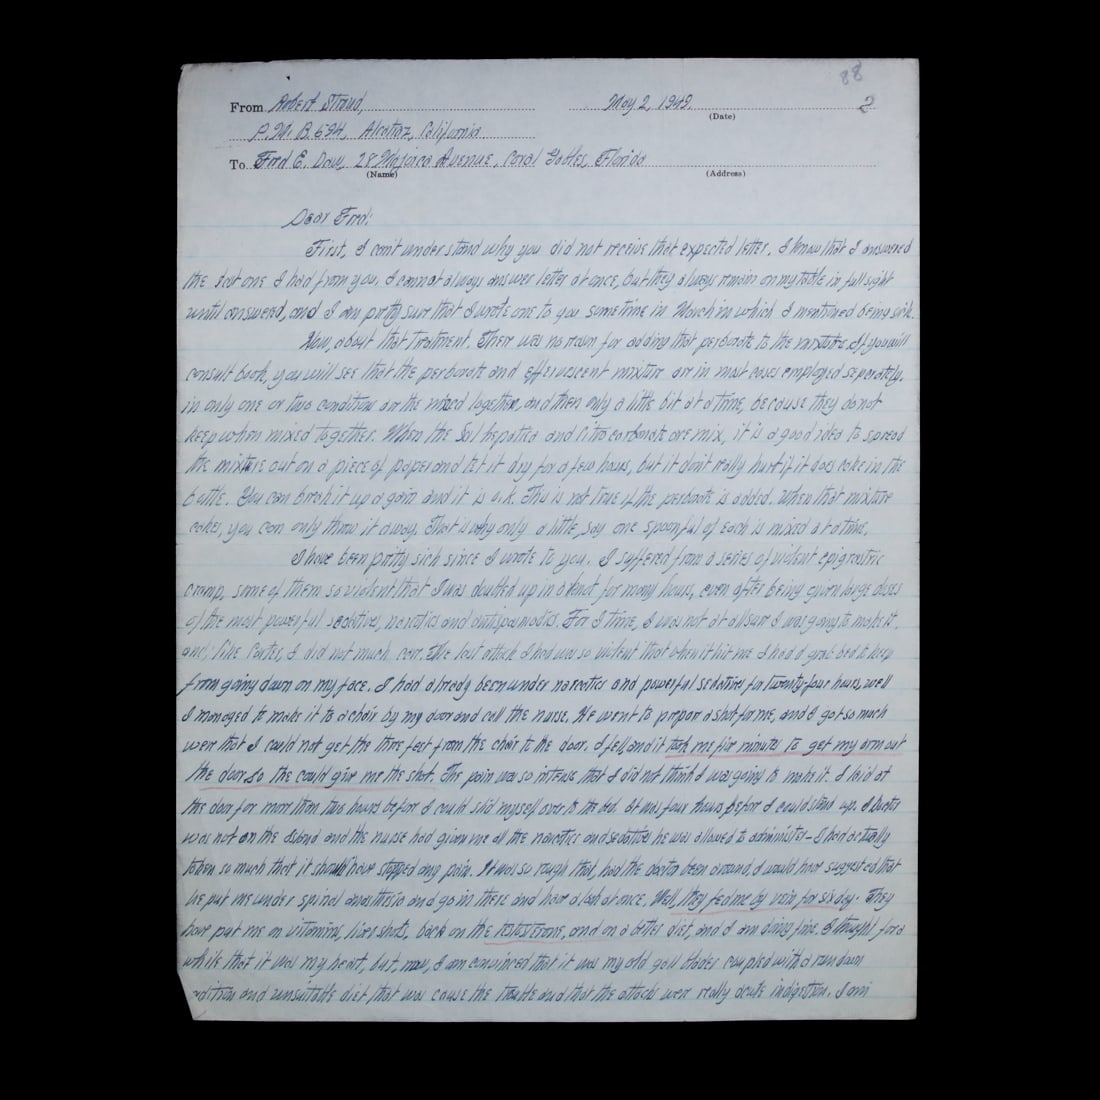 88
From Robert Stroud, May 2, 1949 2
(Date)
P.M.B. 594, Alcatraz, California
To Fred E. Daw, 28 Majorca Avenue, Coral Gables, Florida
(Name) (Address)
Dear Fred:
First, I can't understand why you did not receive that expected letter. I know that I answered
the last one I had from you. I cannot always answer letter at once, but they always remain on my table in full sight
until answered, and I am pretty sure that I wrote one to you sometime in March in which I mentioned being sick.
Now, about that treatment. There was no reason for adding that perborate to the mixture. If you will
consult book, you will see that the perborate and effervescent mixture are in most cases employed seperately.
in only one or two condition are the mixed together, and then only a little bit at a time, because they do not
keep when mixed together. When the Sal hepatica and citrocarbonate are mix, it is a good idea to spread
the mixture out on a piece of paper and let it dry for a few hours, but it don't really hurt if it does cake in the
bottle. You can break it up again and it is o.k. This is not true if the perborate is added. When that mixture
cakes, you can only throw it away. That is why only a little, say one spoonful of each is mixed at a time.
I have been pretty sick since I wrote to you. I suffered from a series of violent epigrastric
cramp, some of them so violent that I was doubled up in a knot for many hours, even after being given large doses
of the most powerful seditive, narcotics and antispasmodics. For a time, I was not at all sure I was going to make it,
and, like Carter, I did not much care. The last attack I had was so violent that when it hit me I had to grab bed to keep
from going down on my face. I had already been under narcotics and powerful sedatives for twenty-four hours, well
I managed to make it to a chair by my door and call the nurse. He went to prepare a shot for me, and I got so much
worse that I could not get the three feet from the chair to the door. I fell, and it took me five minutes to get my arm out
the door so the could give me the shot. The pain was so intense that I did not think I was going to make it. I laid at
the door for more than two hours before I could slid myself over to the bed. It was four hours before I could stand up. A doctor
was not on the Island and the nurse had given me all the narcotics and sedative he was allowed to administer – I had actually
taken so much that it should have stopped any pain. It was so rough that, had the doctor been around, I would have suggested that
he put me under spinal anasthesia and go in there and have a look at once. Well, they fed me by vein for six day. They
have put me on vitamins, liver shots, back on the testosterone, and on a better diet, and I am doing fine. I thought for a
while that it was my heart, but, now, I am convinced that it was my old gall bladder coupled with a run down
condition and unsuitable diet that was cause the trouble and that the attacks were really acute indigestion. I am